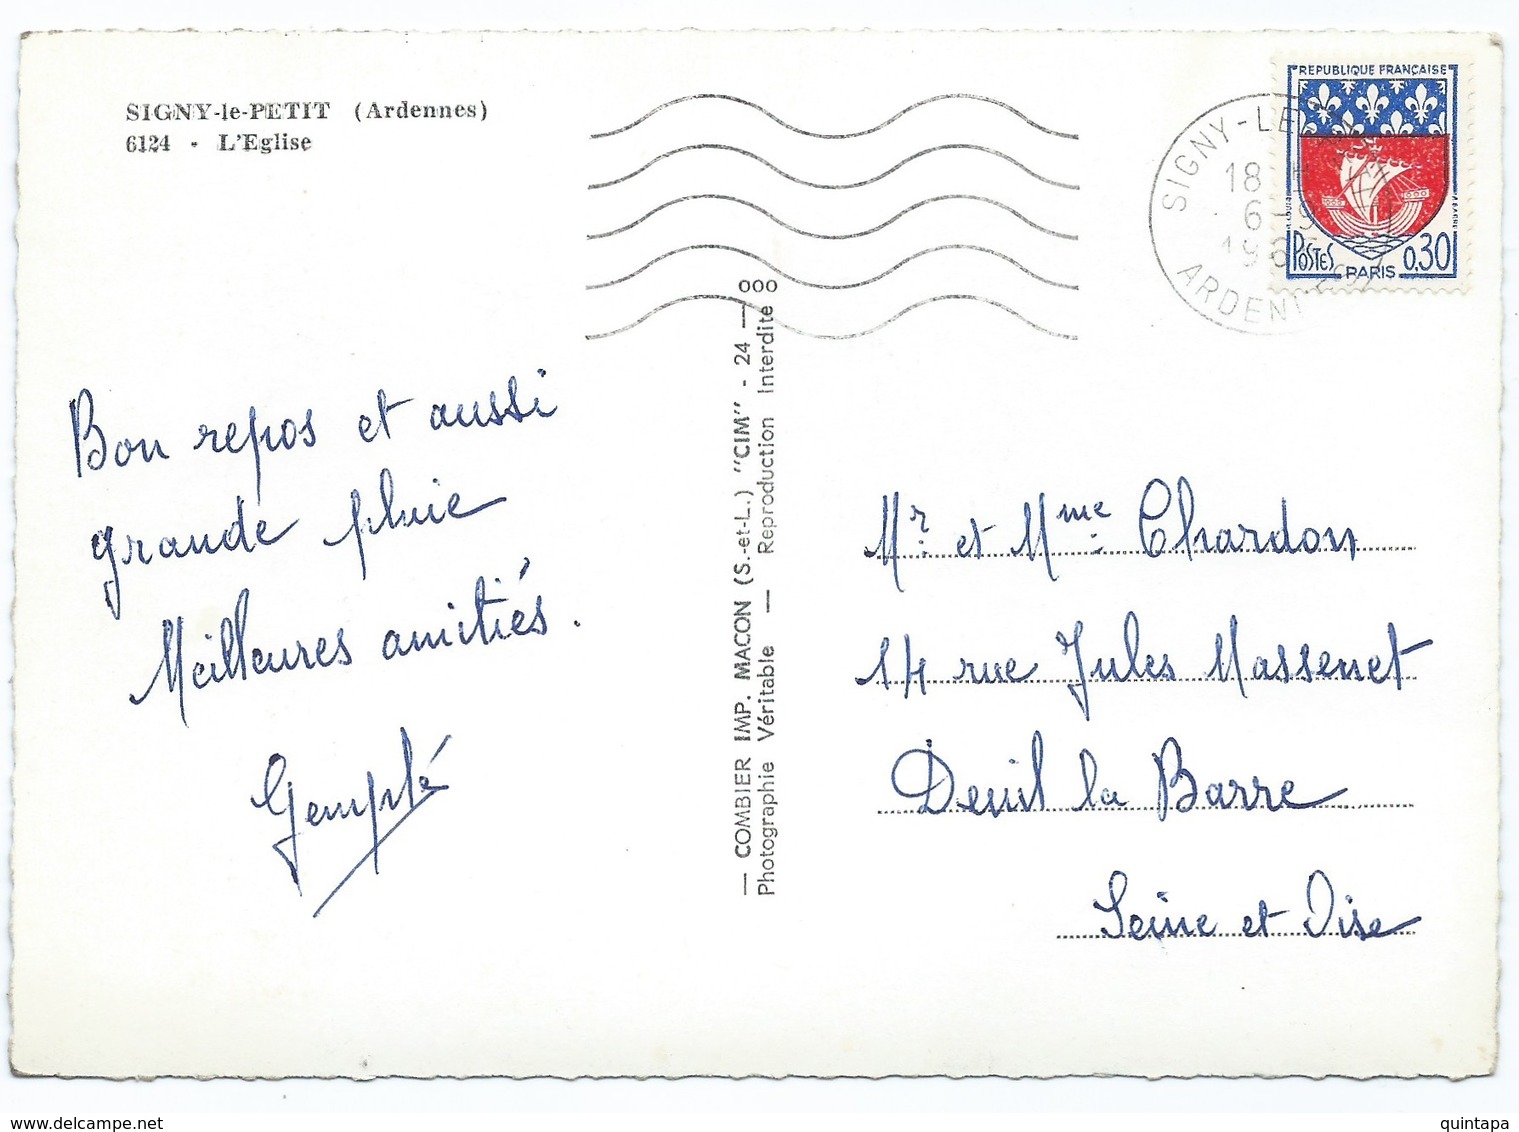 SIGNY-le-PETIT (Ardennes)
6124 - L'Eglise
Bon repos et aussi
grande pluie
Meilleures amitiés.
— COMBIER IMP. MACON (S.-et-L.) "CIM" - 24 — ooo
Photographie Véritable — Reproduction Interdite
REPUBLIQUE FRANÇAISE
POSTES PARIS 0,30
SIGNY-LE
18
6-9
196
ARDENNES
Mr et Mme Chardon
14 rue Jules Massenet
Deuil la Barre
Seine et Oise
quintapa